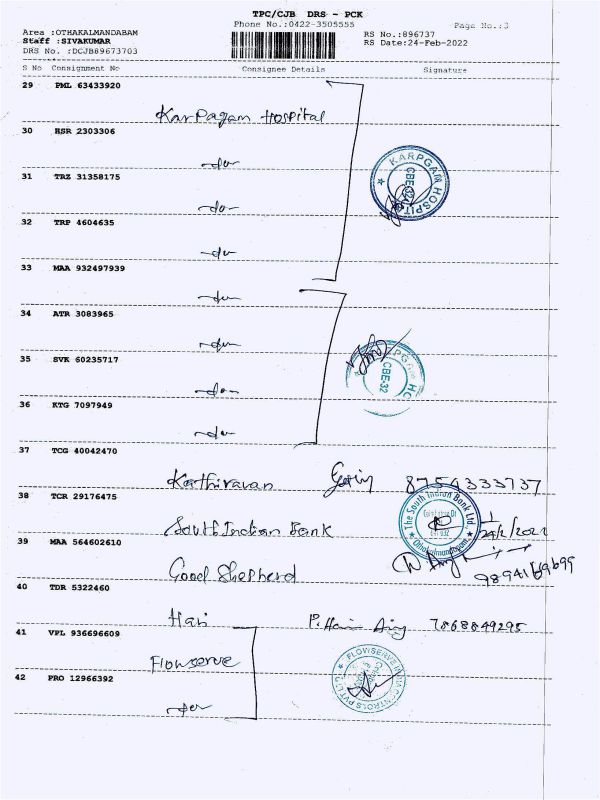 TPC/CJB DRS - PCK
Phone No.:0422-3505555
Page No.:3
Area :OTHAKALMANDABAM
Staff :SIVAKUMAR
DRS No. :DCJB89673703
RS No.:896737
RS Date:24-Feb-2022
S No Consignment No Consignee Details Signature
29 PML 63433920
Karpagam Hospital
30 HSR 2303306
-do-
31 TRZ 31358175
-do-
KARPGAM HOSPITAL
CBE-32
32 TRP 4604635
-do-
33 MAA 932497939
-do-
34 ATR 3083965
-do-
35 SVK 60235717
CBE-32
-do-
36 KTG 7097949
-do-
37 TCG 40042470
Karthiravan 8754333737
38 TCR 29176475
The South Indian Bank Ltd.
Othakalmandapam
South Indian Bank
39 MAA 564602610
Good Shepherd
40 TDR 5322460
Hari P. Hari 7868849295
41 VPL 936696609
Flowserve
FLOWSERVE
CONTROLS PVT LTD
42 PRO 12966392
-do-